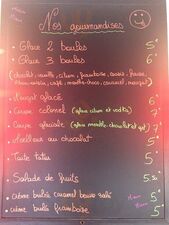 Miam
Miam
Nos gourmandises
Glace 2 boules 5€
Glace 3 boules 6€
(chocolat, vanille, citron, framboise, cassis, fraise,
rhum raisins, café, menthe-choc, caramel,
Nougat glacé 6€
Coupe colonel (glace citron et vodka) 7€
Coupe glaciale (glace menthe chocolat et get) 7€
Moelleux au chocolat 5€
Tarte Tatin 5€
Salade de fruits 5.50
crème brûlée caramel beurre salé 5€
crème brulé framboise 5€
Miam
Miam